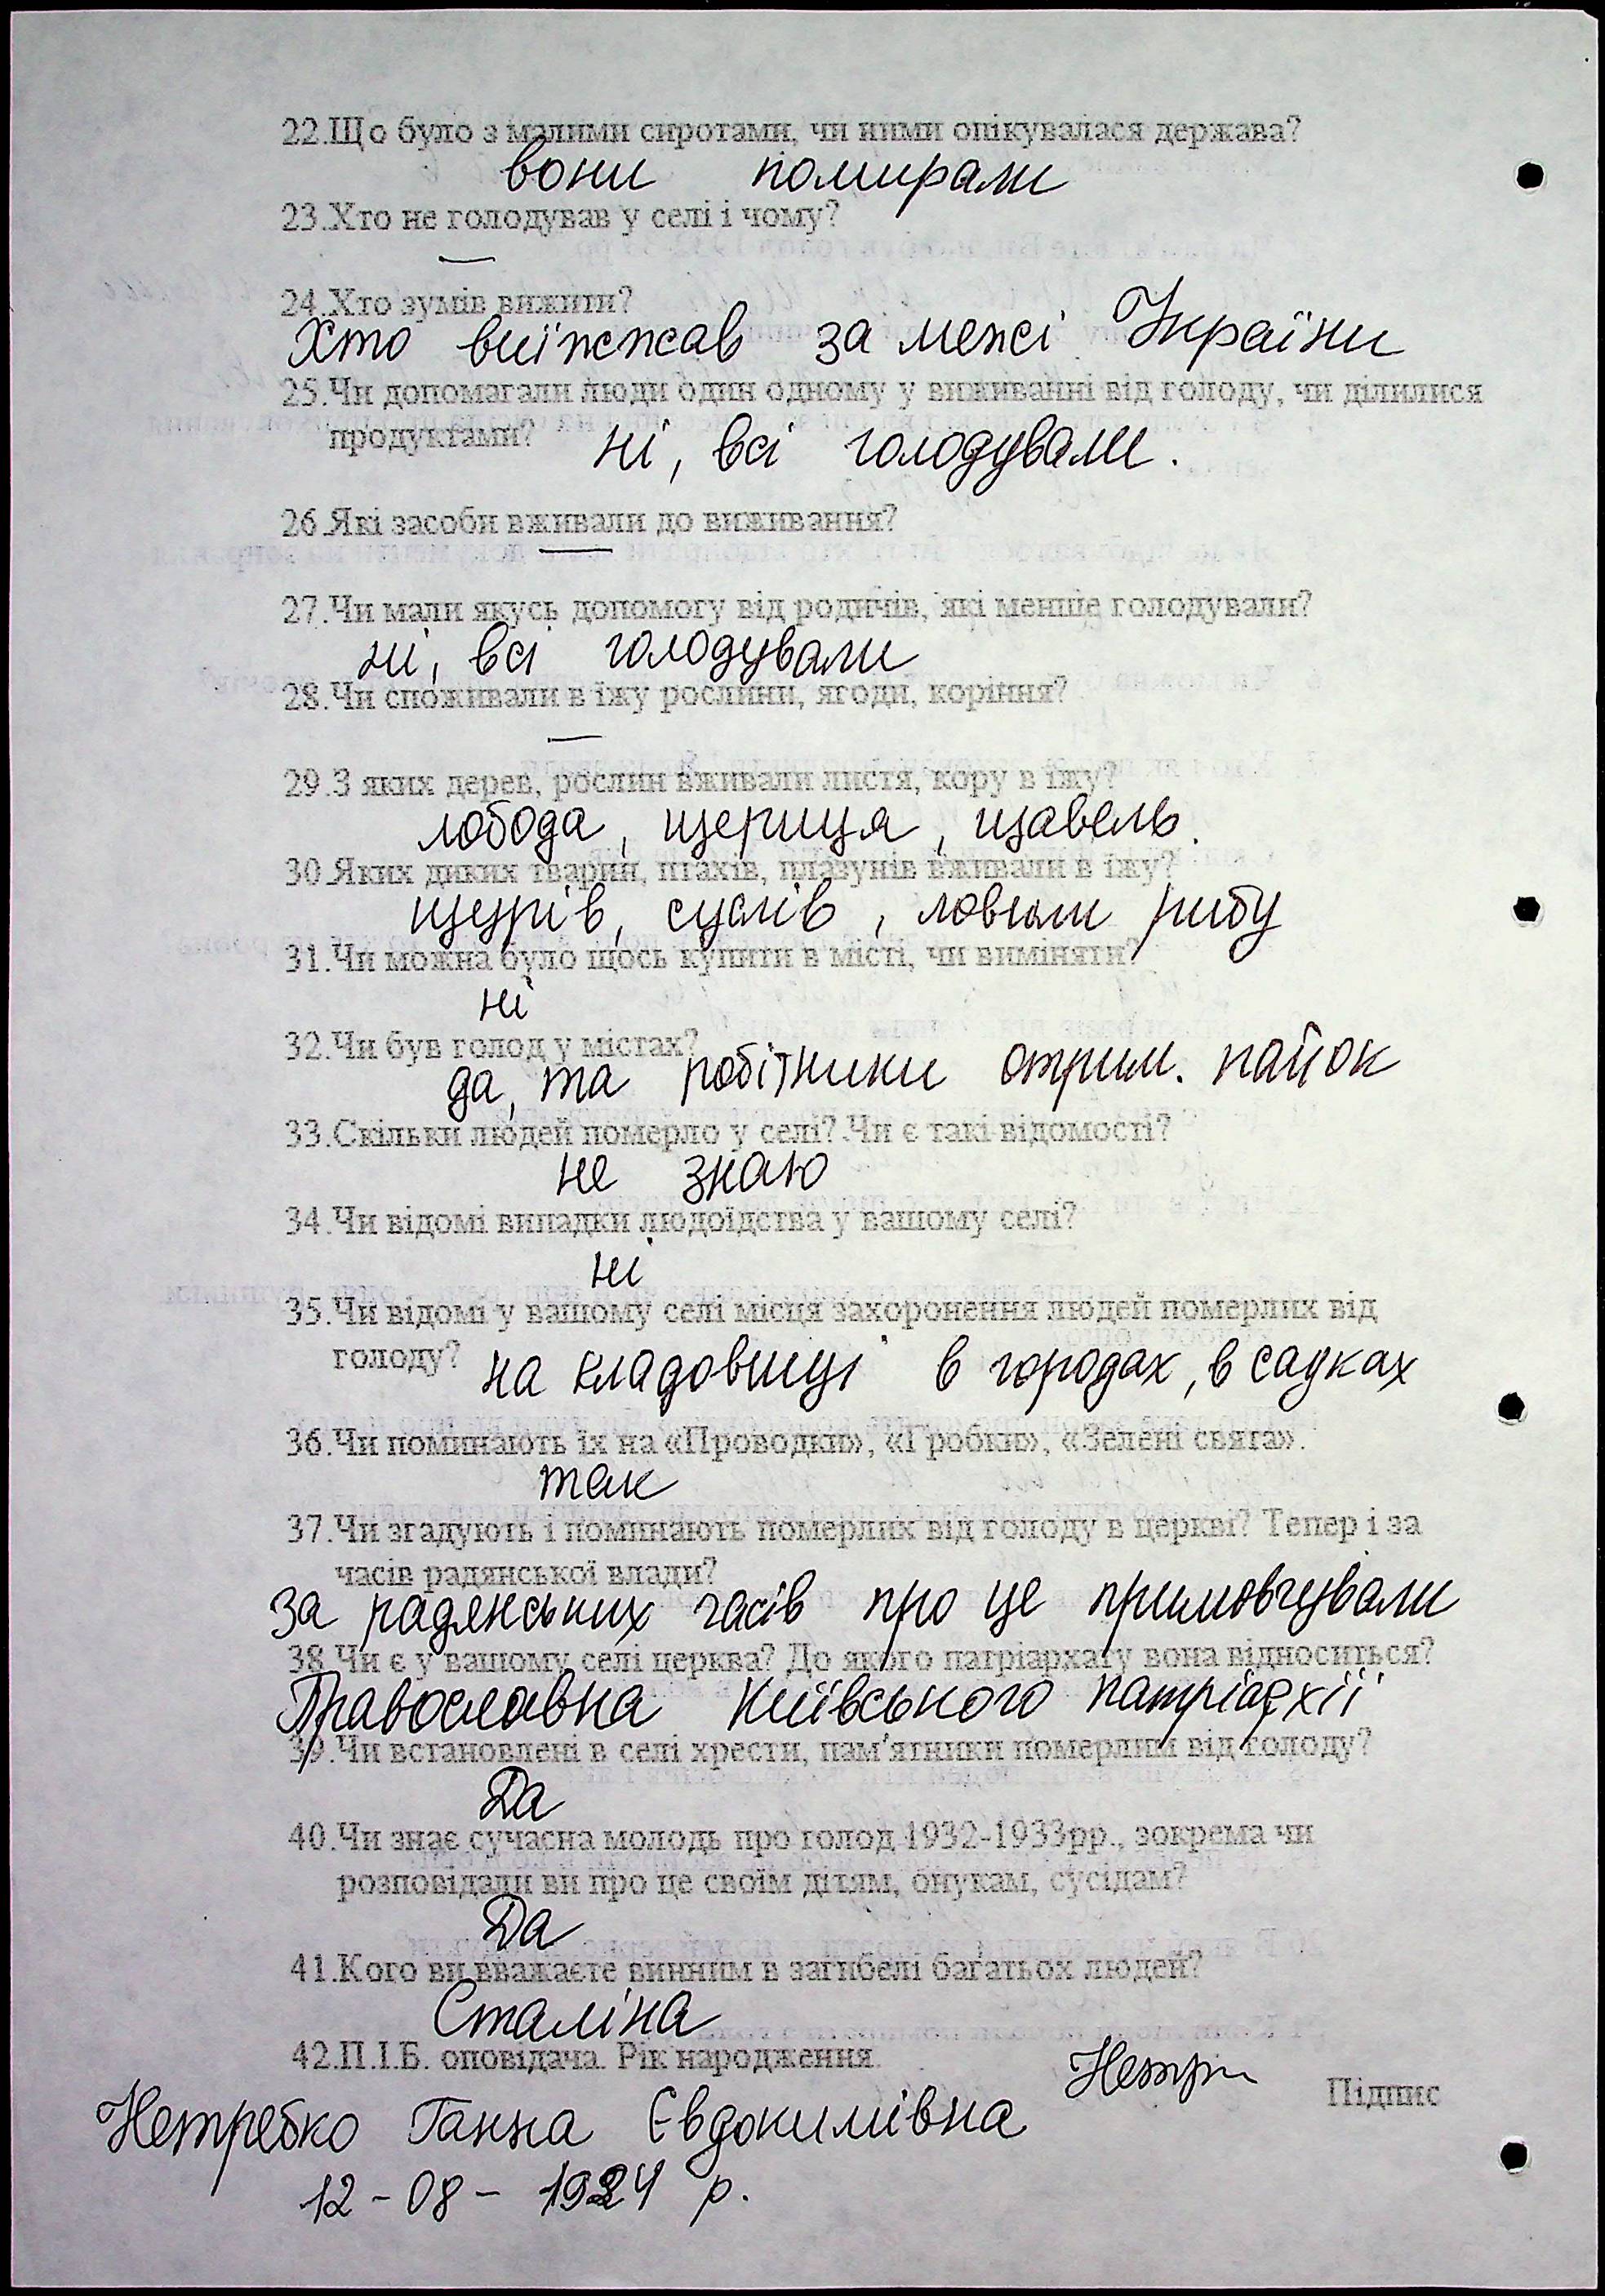 22.Що було з малими сиротами, чи ними опікувалася держава?
вони помирали
23.Хто не голодував у селі і чому?
—
24.Хто зумів вижити?
Хто виїжжав за межі України
25.Чи допомагали люди один одному у виживанні від голоду, чи ділилися
продуктами? ні, всі голодували.
26.Які засоби вживали до виживання?
—
27.Чи мали якусь допомогу від родичів, які менше голодували?
ні, всі голодували
28.Чи споживали в їжу рослини, ягоди, коріння?
—
29.З яких дерев, рослин вживали листя, кору в їжу?
лобода, щериця, щавель.
30.Яких диких тварин, птахів, плазунів вживали в їжу?
щурів, суслів, ловили рибу
31.Чи можна було щось купити в місті, чи виміняти?
ні
32.Чи був голод у містах?
да, та робітники отрим. пайок
33.Скільки людей померло у селі? Чи є такі відомості?
не знаю
34.Чи відомі випадки людоїдства у вашому селі?
ні
35.Чи відомі у вашому селі місця захоронення людей померлих від
голоду? на кладовищі в городах, в садках
36.Чи поминають їх на «Проводки», «Гробки», «Зелені свята».
так
37.Чи згадують і поминають померлих від голоду в церкві? Тепер і за
часів радянської влади?
за радянських часів про це примовчували
38.Чи є у вашому селі церква? До якого патріархату вона відноситься?
Православна Київського патріархії
39.Чи встановлені в селі хрести, пам'ятники померлим від голоду?
Да
40.Чи знає сучасна молодь про голод 1932-1933рр., зокрема чи
розповідали ви про це своїм дітям, онукам, сусідам?
Да
41.Кого ви вважаєте винним в загибелі багатьох людей?
Сталіна
42.П.І.Б. оповідача. Рік народження.
Нетр Підпис
Нетребко Ганна Євдокимівна
12-08-1924 р.